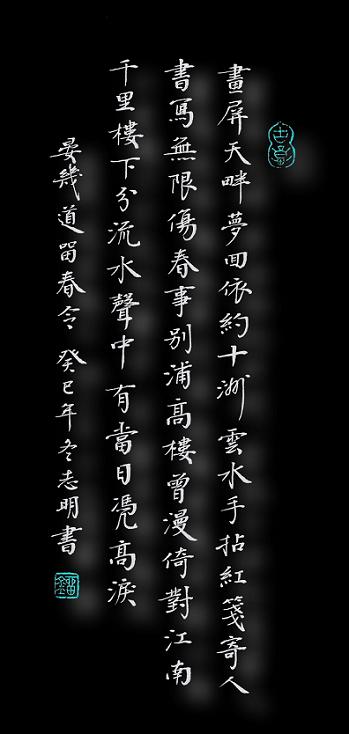 畫屏天畔夢回依約十洲雲水手拈紅箋寄人
書寫無限傷春事別浦高樓曾漫倚對江南
千里樓下分流水聲中有當日憑高淚
晏幾道留春令 癸巳年冬志明書